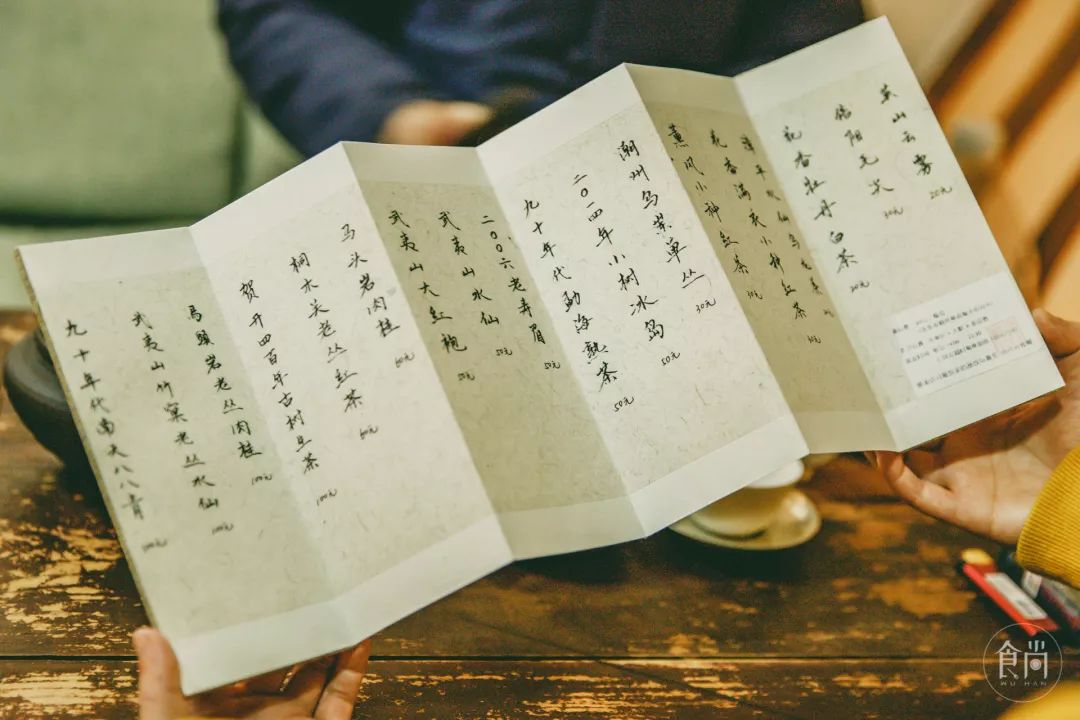 英山云雾 20元
信阳毛尖 30元
花香牡丹白茶 30元
漳平水仙乌龙茶
花香满衣小种红茶 30元
薰风小种红茶 30元
潮州乌岽单丛 30元
二〇一四年小树冰岛 50元
九十年代勐海熟茶 50元
二〇〇六老寿眉 50元
武夷山水仙 50元
武夷山大红袍 50元
马头岩肉桂 60元
桐木关老丛红茶 60元
贺开四百年古树生茶 100元
馬頭岩老丛肉桂 100元
武夷山竹窠老丛水仙 100元
九十年代南天八八青 100元
食尚
WU HAN